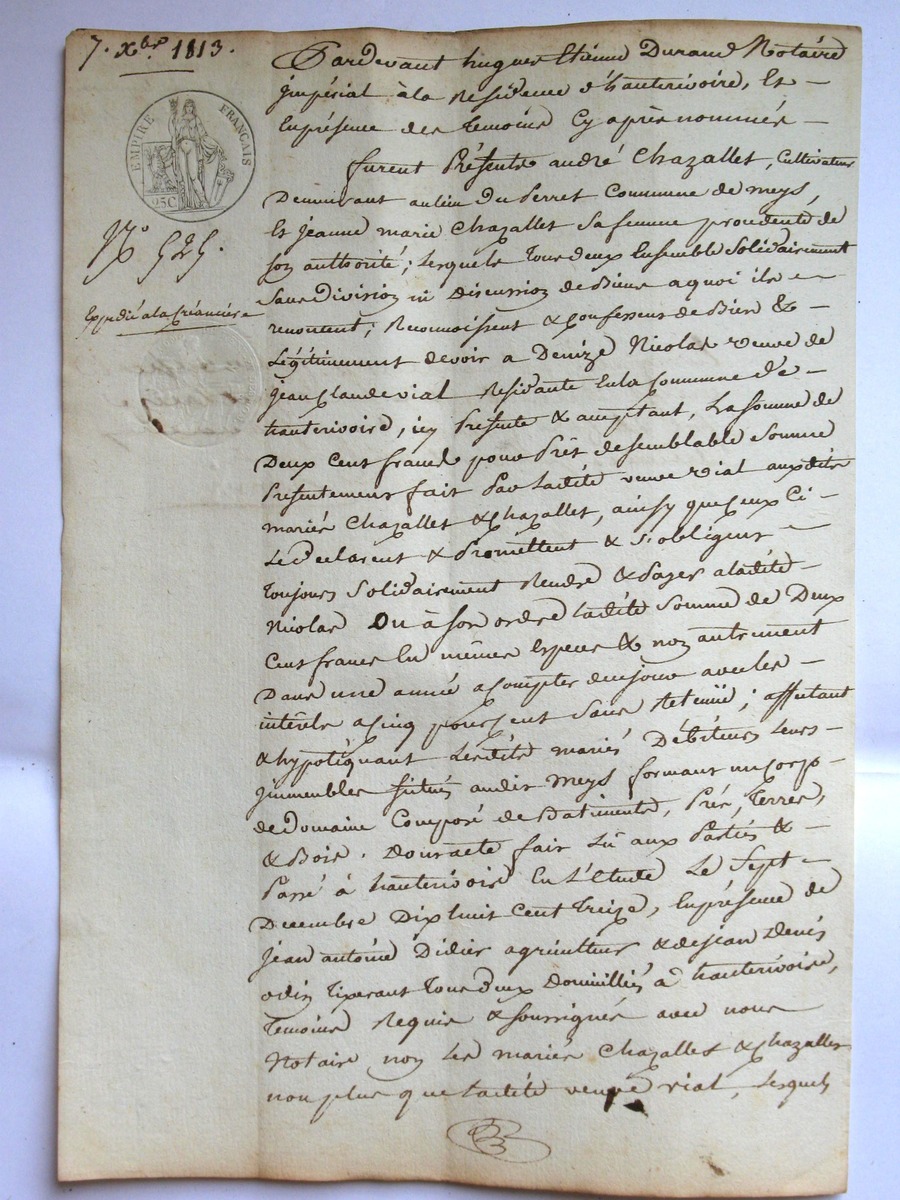 7. Xbre 1813.
EMPIRE FRANÇAIS
25C
No 525.
Expédié à la Créancière
Pardevant hugues Etienne Durand Notaire
jmpérial à la Residence d'hauterivoire, Et
Enprésence des temoins Cy après nommés
furent Présents andré Chazallet, Cultivateur
Demeurant au lieu du Perret Commune de meys,
Et jeanne marie Chazallet sa femme procedente de
son authorité; lesquels tous deux Ensemble Solidairement
Sans Division ni Discussion de Biens a quoi ils
renontent; Reconnoissent & Confessent de Bien &
Légitimement devoir a Denize Nicolas veuve de
jean Claude vial Residante En la Commune d'e
hauterivoire, icy Présente & acceptant, La somme de
Deux Cent francs pour Prêt de semblable Somme
Présentement fait Par Ladite veuve vial auxdits
mariés Chazallet & Chazallet, ainsy que Ceux Ci
Le Déclarent & Promettent & S'obligent
toujours Solidairement Rendre & Payer a ladite
Nicolas Ou à Son ordre Ladite Somme de Deux
Cent francs En mêmes Especes & non autrement
Dans une année a Compter de ce jour avec les
intérêts a Cinq pour Cent Sans Retenüe; affectant
& hypotéquant Lesdits mariés Débiteurs leurs
jmmeubles Situés audit Meys formant un Corp
de Domaine Composé de Batiments, Prés, Terres,
& Bois. Dont acte fait Lû aux Parties &
Passé à hauterivoire En L'Etude Le Sept
Decembre Dix huit Cent Treize, Enprésence de
jean antoine Didier agriculteur & de jean Denis
odin tixerant tous deux Domicilliés à hauterivoire,
temoins Requis & soussignés avec nous
Notaire non les mariés Chazalles & Chazalles
non plus que Ladite veuve vial, Lesquels